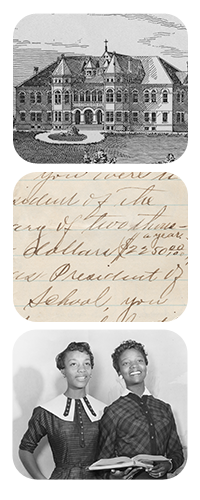 you were
sident of the
ary of two thous-
a year.
dollars ($2250.00
as President of
School, you